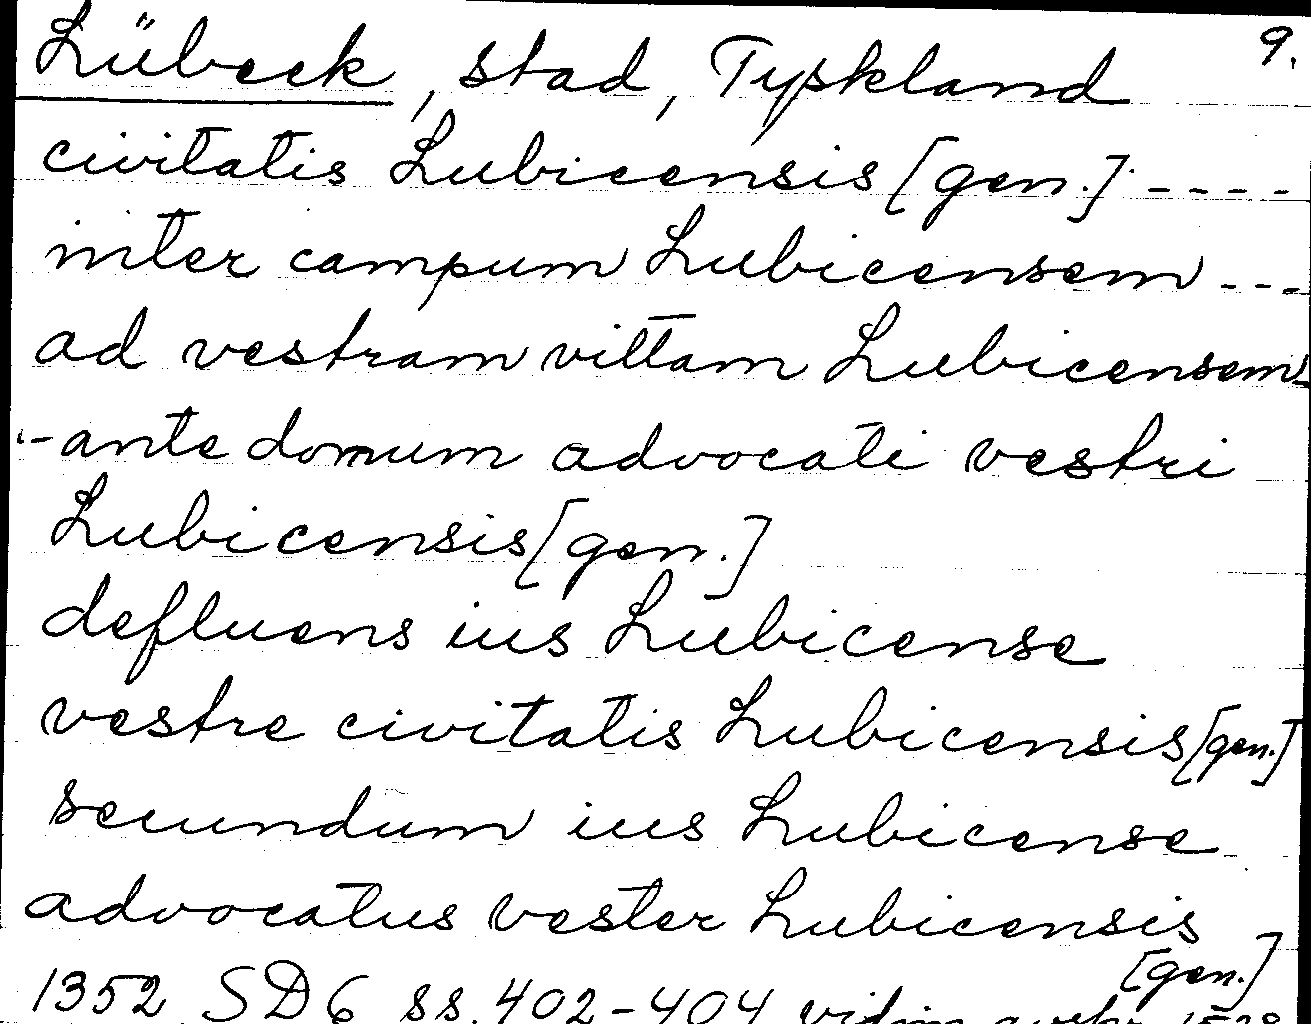 9.
Lübeck, stad, Tyskland
civitatis Lubicensis [gen.] ----
inter campum Lubicensem ---
ad vestram vittam Lubicensem-
-ante domum advocati vestri
Lubicensis [gen.]
defluens ius Lubicense
vestre civitatis Lubicensis [gen.]
secundum ius Lubicense
advocatus vester Lubicensis
[gen.]
1352 SD6 ss. 402-404